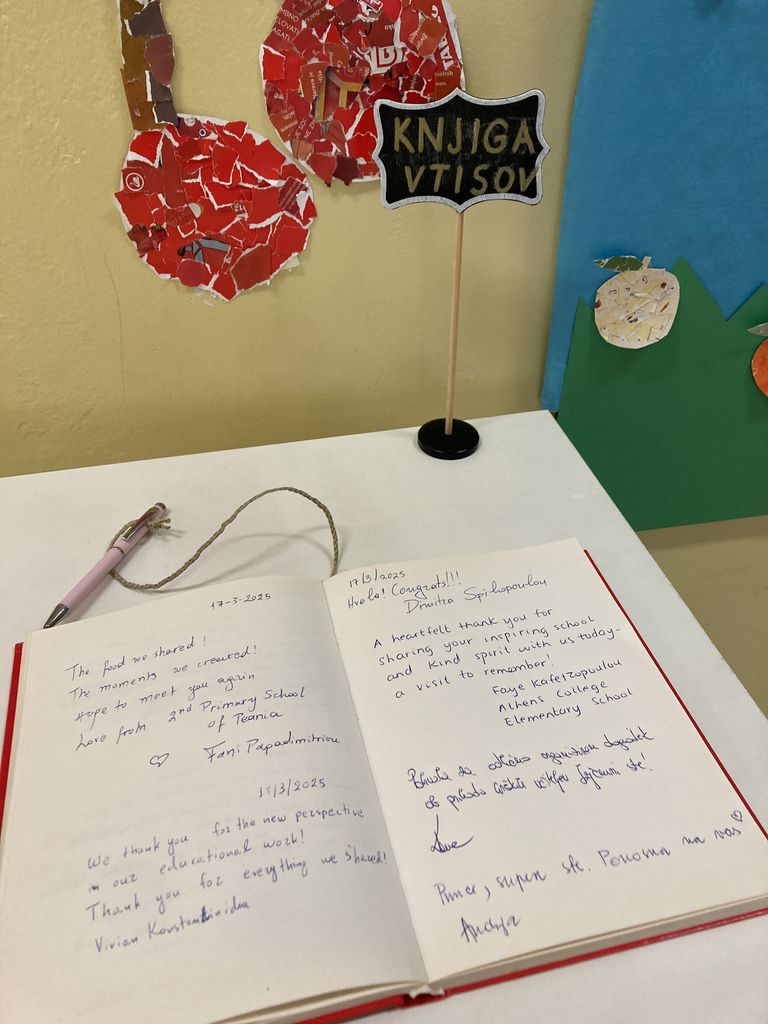 KNJIGA
VTISOV
17-3-2025
The food we shared!
The moments we created!
Hope to meet you again
Love from 2nd Primary School
of Teania
♡ Fani Papadimitriou
17/3/2025
We thank you for the new perspective
in our educational work!
Thank you for everything we shared!
Vivian Konstantinidou
17/3/2025
Hvala! Congrats!!!
Dimitra Spiliopoulou
A heartfelt thank you for
sharing your inspiring school
and kind spirit with us today-
a visit to remember!
Faye Kafetzopoulou
Athens College
Elementary School
za odlično organiziran dogodek
ob prihodu grških
ste!
Punce, super ste. Ponosna na vas ♡